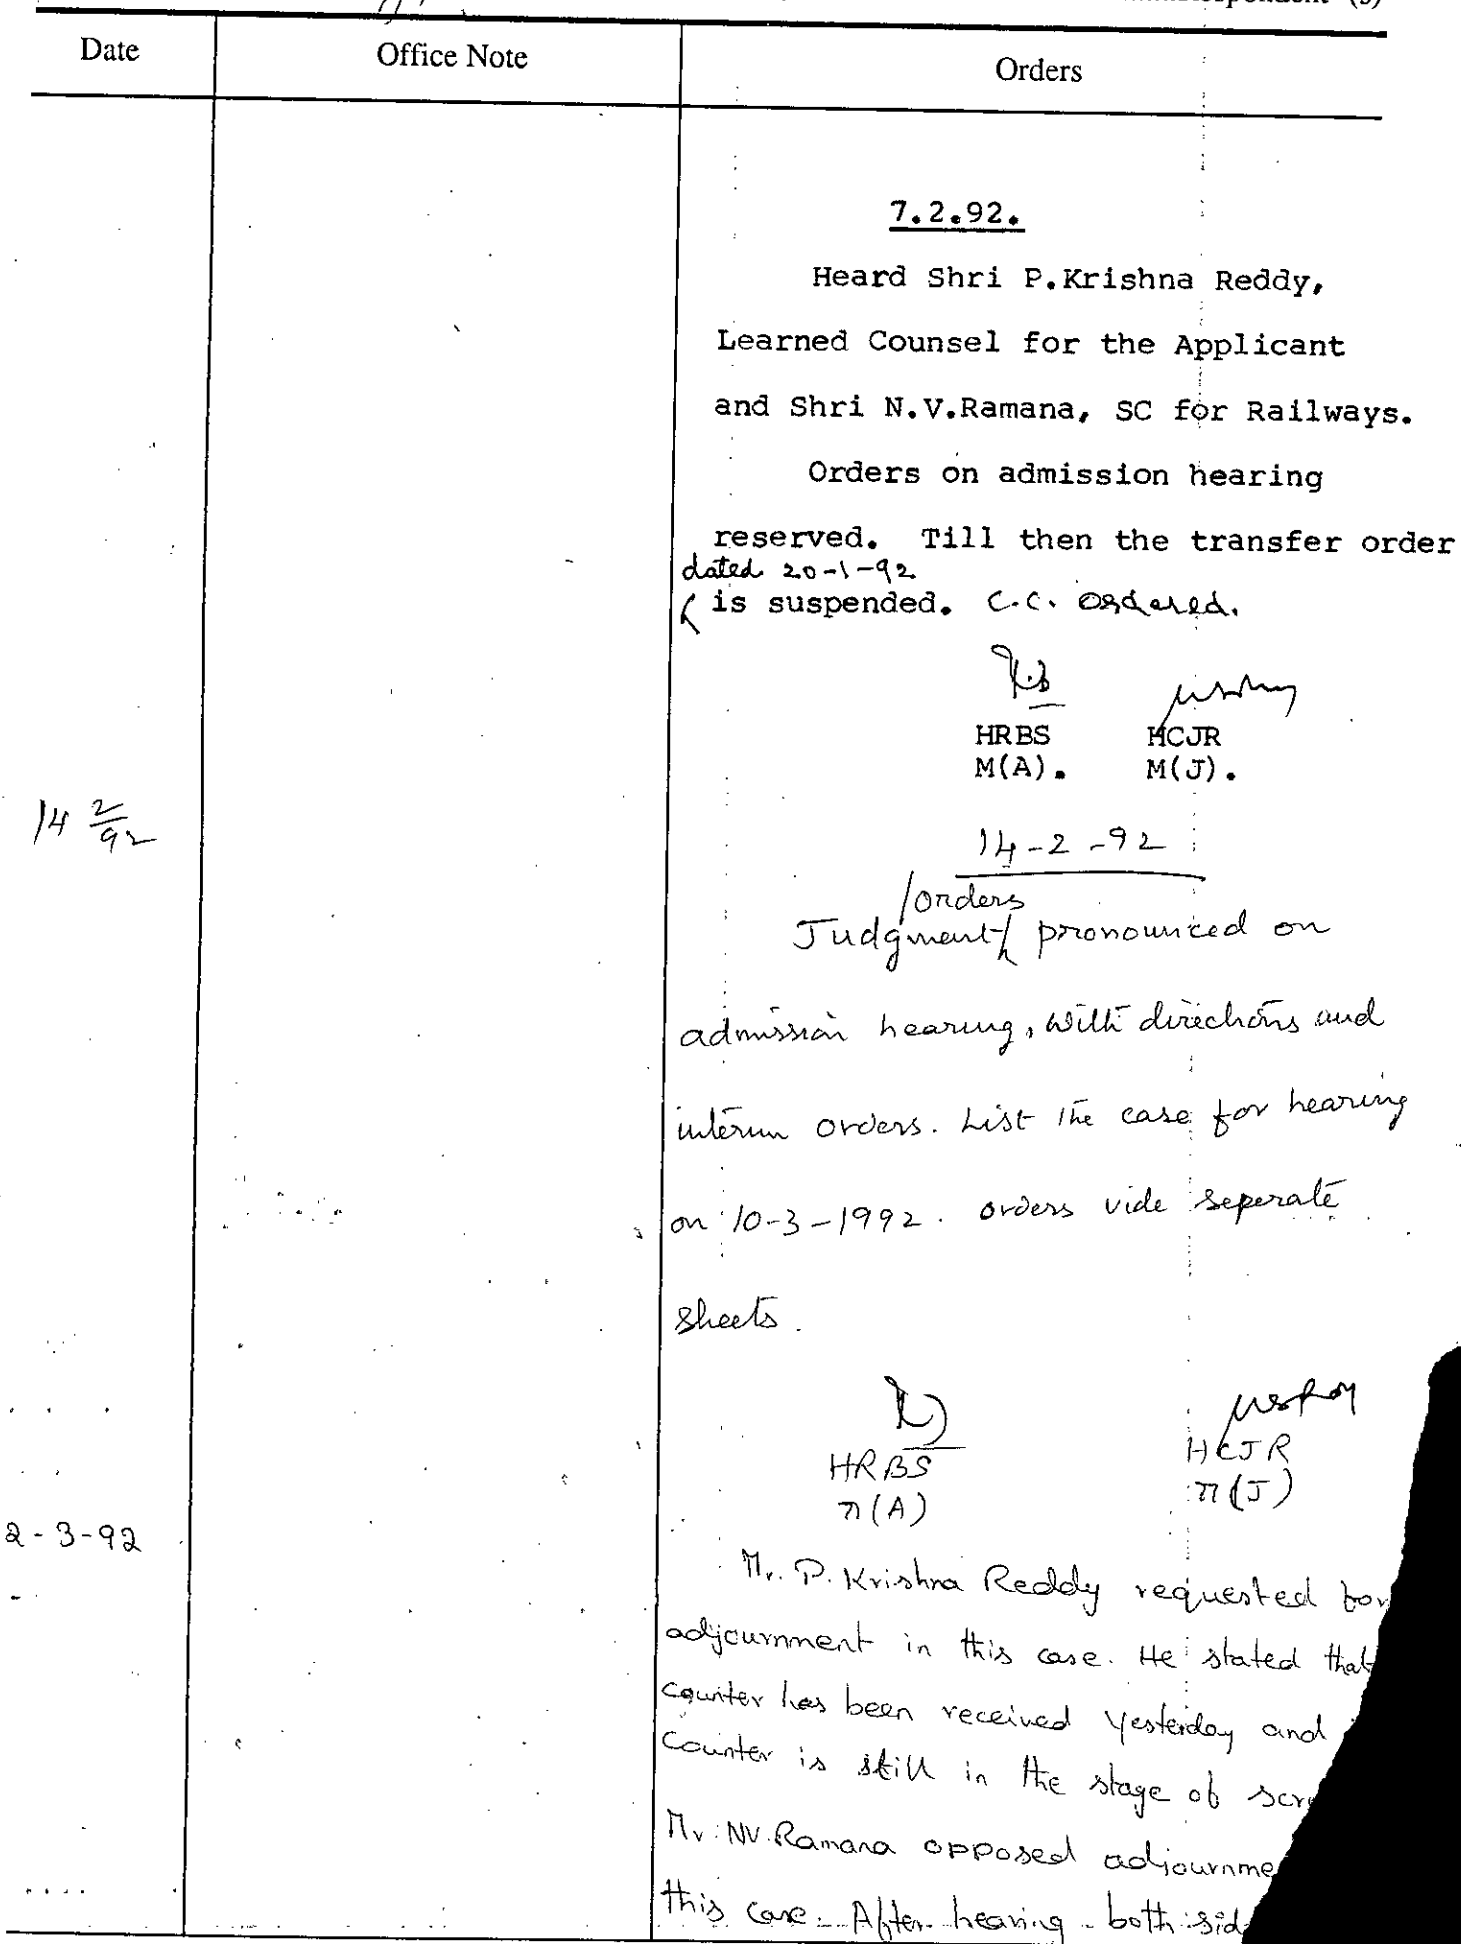 Date
Office Note
Orders
7.2.92.
Heard Shri P.Krishna Reddy,
Learned Counsel for the Applicant
and Shri N.V.Ramana, SC for Railways.
Orders on admission hearing
reserved. Till then the transfer order
dated 20-1-92
is suspended. C.C. ordered.
HRBS HCJR
M(A). M(J).
14 2/92
14-2-92
/orders
Judgment pronounced on
admission hearing, with directions and
interim orders. List the case for hearing
on 10-3-1992. orders vide seperate
sheets.
HRBS HCJR
M(A) M(J)
2-3-92
Mr. P. Krishna Reddy requested for
adjournment in this case. He stated that
counter has been received yesterday and
counter is still in the stage of
Mr. NV. Ramana opposed
this case. After hearing both